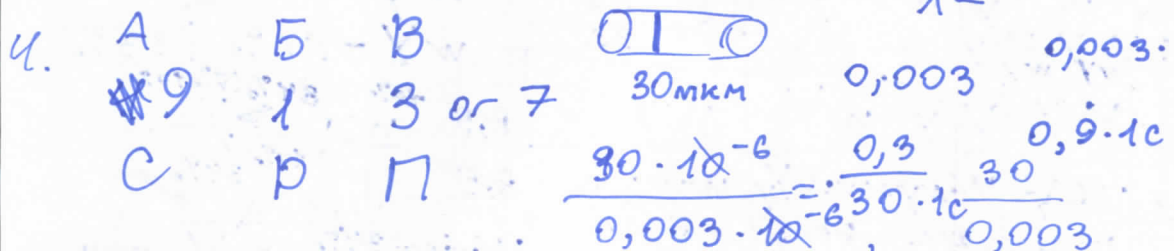 4. А Б В
9 1 3 or 7
С Р П
30мкм
0,003
0,003·
0,9·1с
30·10⁻⁶ / 0,003·10⁻⁶ = 0,3 / 30·1с
30 / 0,003